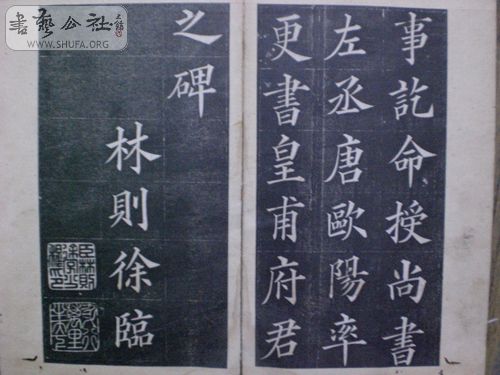 書藝公社
WWW.SHUFA.ORG
事訖命授尚書
左丞唐歐陽率
更書皇甫府君
之碑
林則徐臨